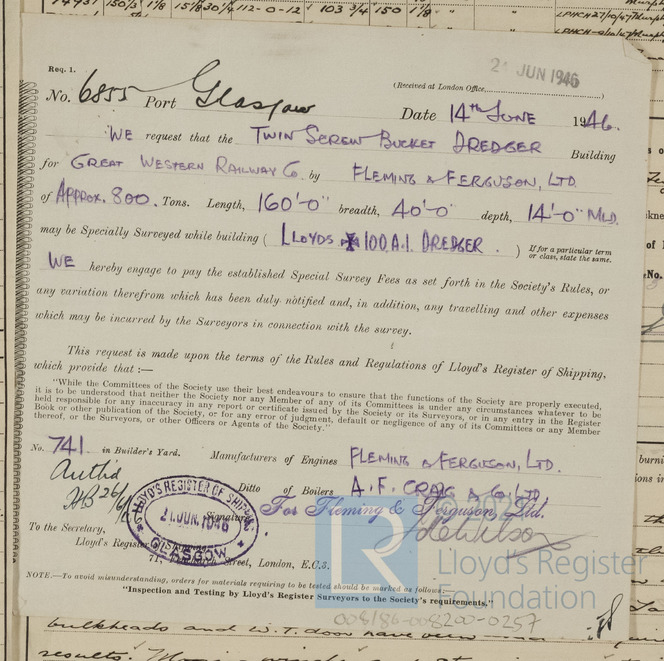 14931 150/3 1/8 15/8 30/4 112-0-12 103 3/4 150 1 1/8
LPHCH 27/10/47
2 JUN 1946
Req. 1.
(Received at London Office
No. 6855 Port Glasgow
Date 14th JUNE 1946.
WE request that the TWIN SCREW BUCKET DREDGER Building
for GREAT WESTERN RAILWAY CO. by FLEMING & FERGUSON, LTD.
of APPROX. 800. Tons. Length, 160'-0" breadth, 40'-0" depth, 14'-0" MLD.
may be Specially Surveyed while building ( LLOYDS ✠ 100.A.1. DREDGER. ) If for a particular term or class, state the same.
WE hereby engage to pay the established Special Survey Fees as set forth in the Society's Rules, or
any variation therefrom which has been duly notified and, in addition, any travelling and other expenses
which may be incurred by the Surveyors in connection with the survey.
This request is made upon the terms of the Rules and Regulations of Lloyd's Register of Shipping,
which provide that :—
"While the Committees of the Society use their best endeavours to ensure that the functions of the Society are properly executed,
it is to be understood that neither the Society nor any Member of any of its Committees is under any circumstances whatever to be
held responsible for any inaccuracy in any report or certificate issued by the Society or its Surveyors, or in any entry in the Register
Book or other publication of the Society, or for any error of judgment, default or negligence of any of its Committees or any Member
thereof, or the Surveyors, or other Officers or Agents of the Society."
No. 741 in Builder's Yard. Manufacturers of Engines FLEMING & FERGUSON, LTD.
Ditto of Boilers A. F. CRAIG & Co. LTD.
Authd
HB 26/6
LLOYD'S REGISTER OF SHIPPING
21 JUN. 1946
GLASGOW
Signature
For Fleming & Ferguson, Ltd.
To the Secretary,
Lloyd's Register
71, Street, London, E.C.3.
NOTE.—To avoid misunderstanding, orders for materials requiring to be tested should be marked as follows:
"Inspection and Testing by Lloyd's Register Surveyors to the Society's requirements."
R
Lloyd's Register
Foundation
008186-008200-0257
bulkheads and W.T. door have been
results.